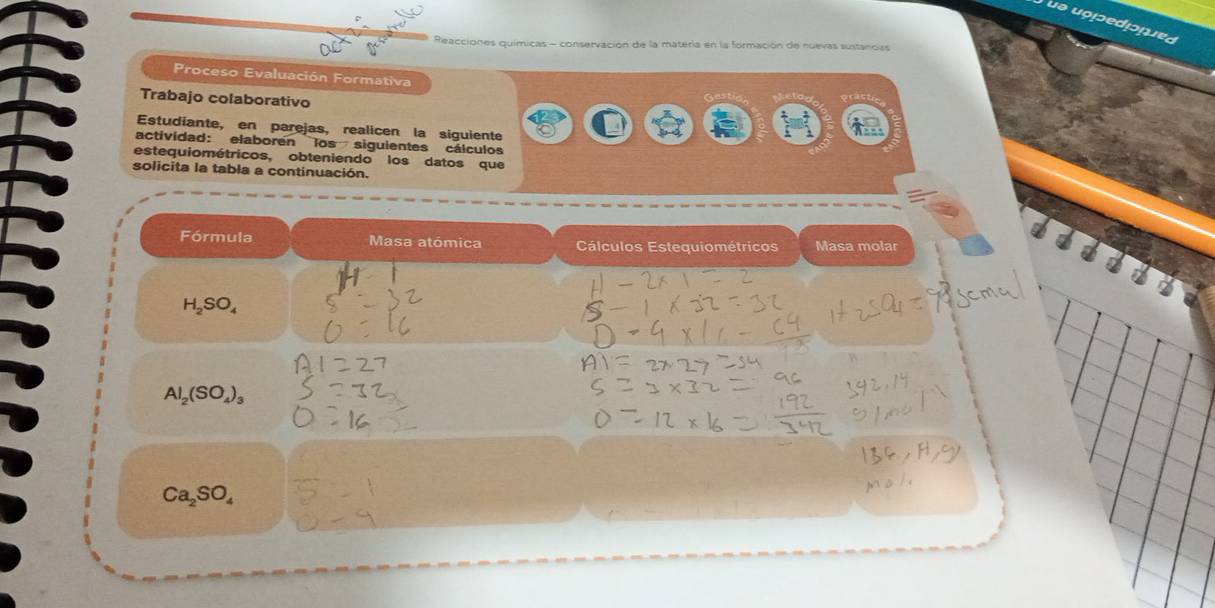 Participación en
Reacciones químicas – conservación de la materia en la formación de nuevas sustancias
Proceso Evaluación Formativa
Trabajo colaborativo
Estudiante, en parejas, realicen la siguiente
actividad: elaboren los siguientes cálculos
estequiométricos, obteniendo los datos que
solicita la tabla a continuación.
123
Gestión escolar
Metodología activa
Práctica educativa
Fórmula
Masa atómica
Cálculos Estequiométricos
Masa molar
H₂SO₄
H - 1
S = 32
O = 16
H - 2x1 = 2
S - 1 x 32 = 32
H2SO4 =
Al₂(SO₄)₃
Al = 27
S = 32
O = 16
Al = 2x27 = 54
S = 3x32 = 96
O = 12 x 16 = 192
342
342,14
g/mol
Ca₂SO₄
S = 1
O - 4
mol